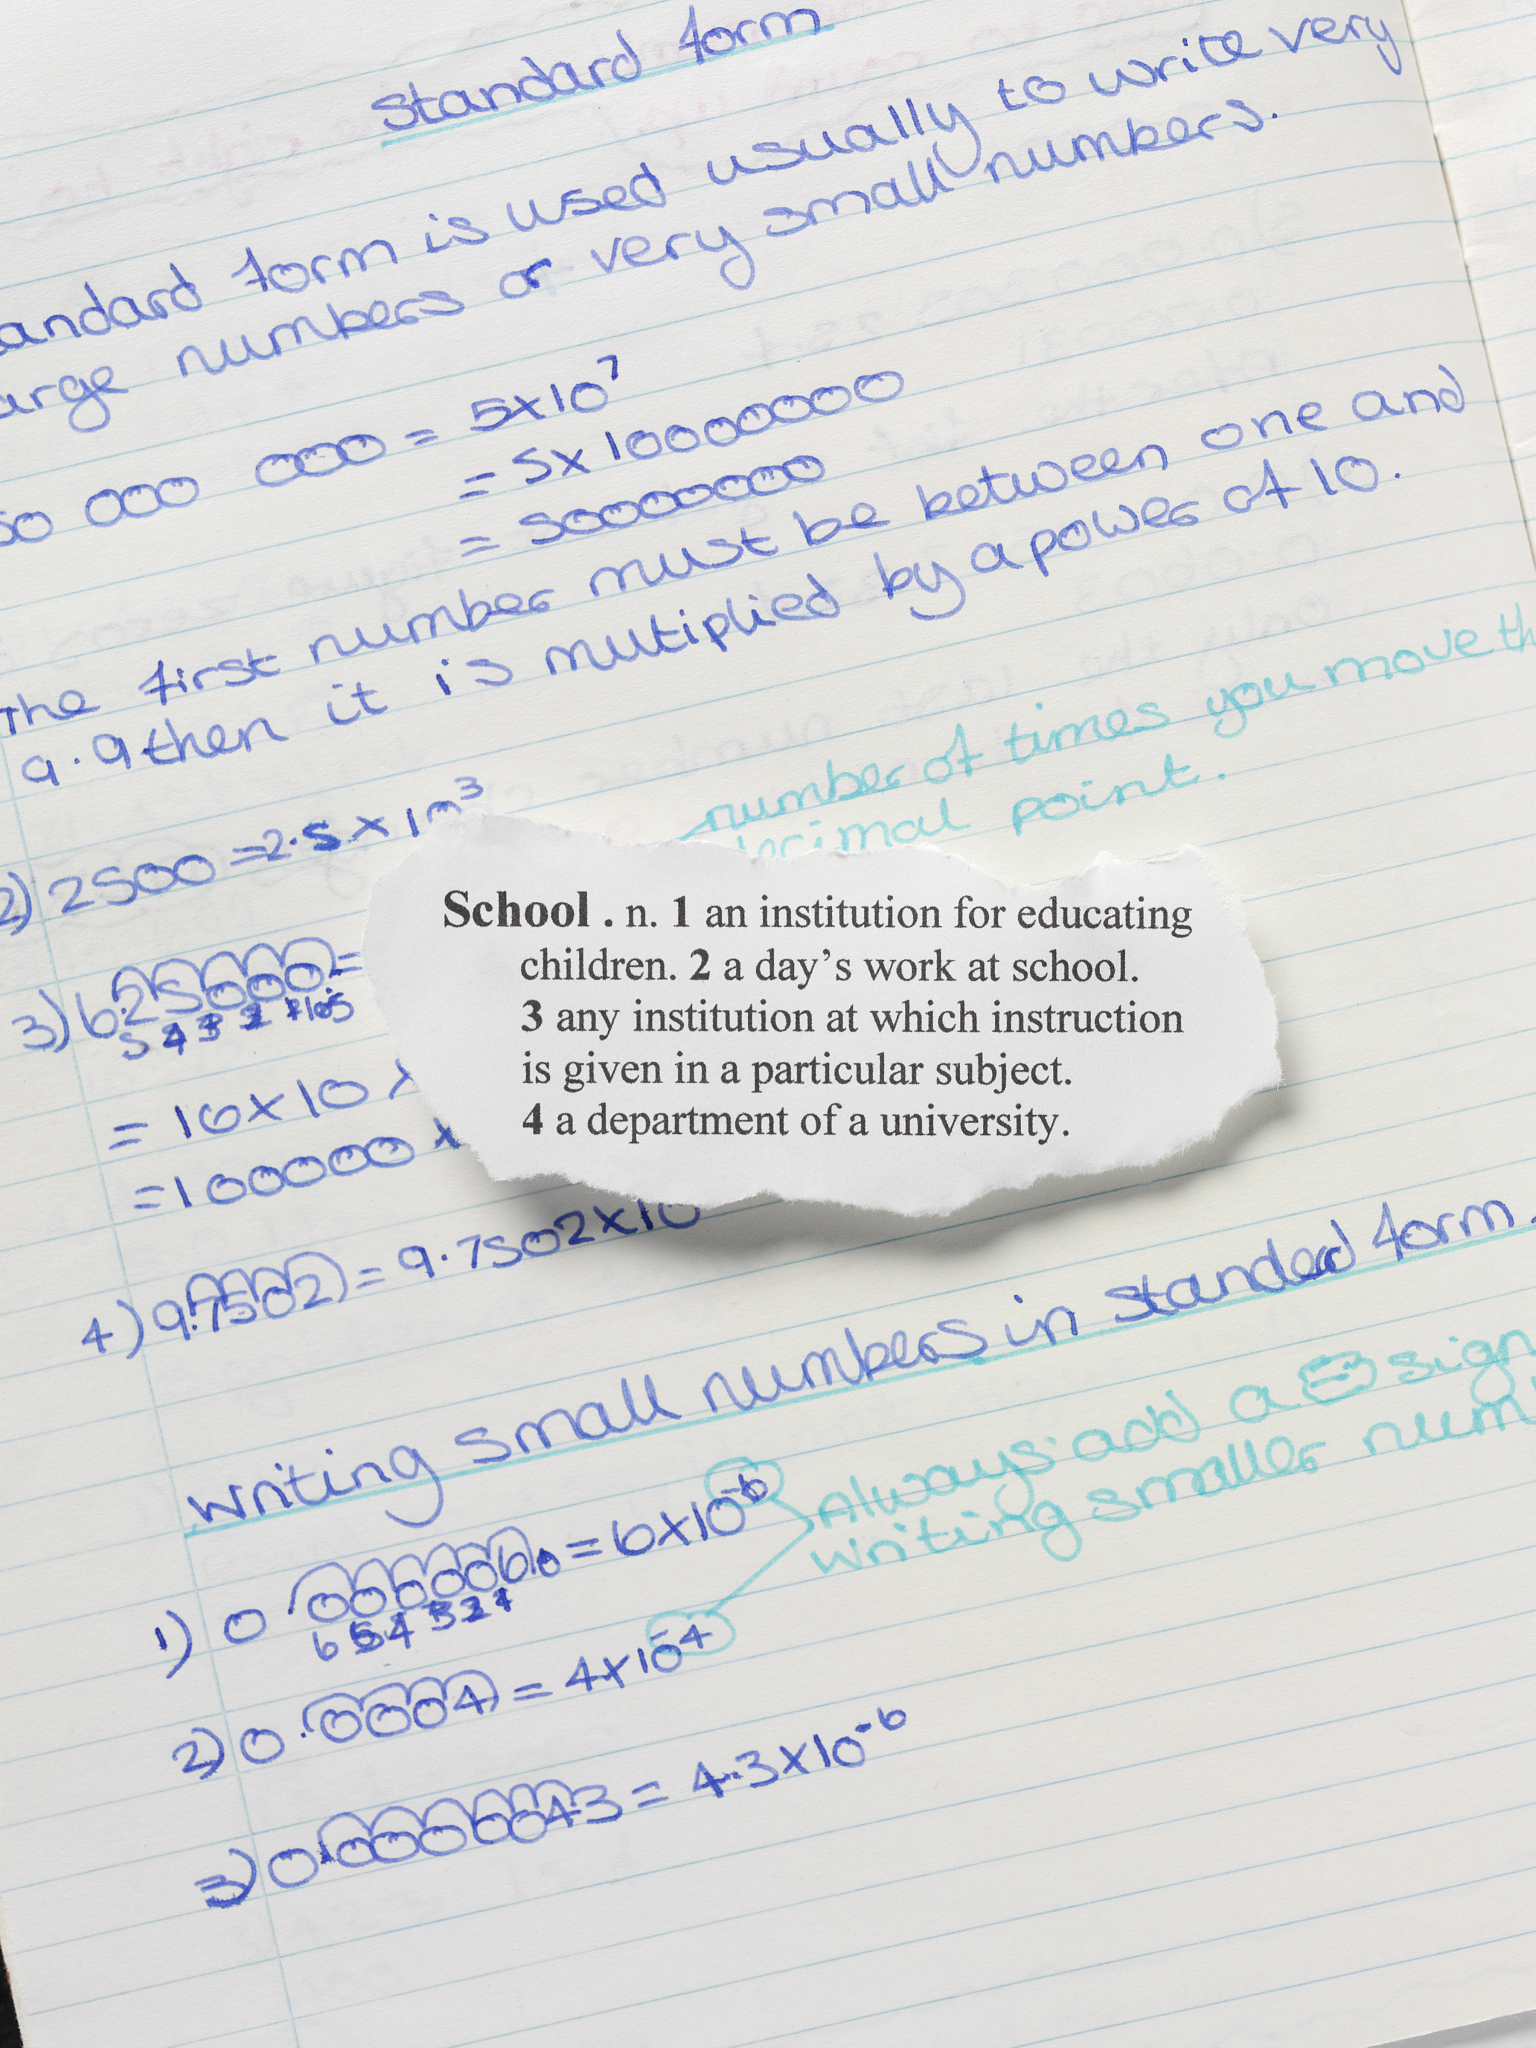 Standard form
andard form is used usually to write very
arge numbers or very small numbers.
50 000 000 = 5x10⁷
= 5x10000000
= 50000000
The first number must be between one and
9.9 then it is multiplied by a power of 10.
number of times you move th
decimal point.
2) 2500 = 2.5 x 10³
3) 625000 =
5 4 3 2 1
= 10x10x
= 100000 x
4) 9.7502 = 9.7502x10
School . n. 1 an institution for educating
children. 2 a day’s work at school.
3 any institution at which instruction
is given in a particular subject.
4 a department of a university.
writing small numbers in standed form.
Always add a - sign
writing smaller num
1) 0 000006. = 6x10⁻⁶
6 5 4 3 2 1
2) 0.0004 = 4x10⁻⁴
3) 0.0000043 = 4.3x10⁻⁶